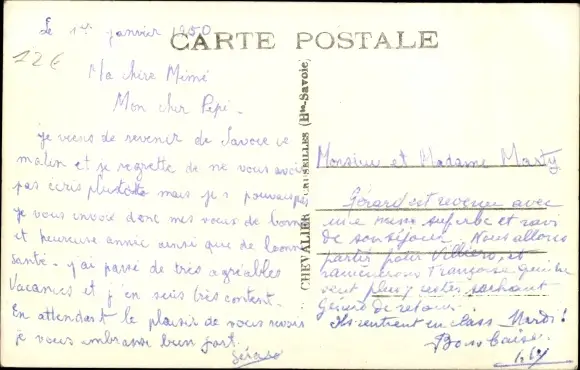 Le 1er janvier 1950
CARTE POSTALE
12€
Ma chère Mimé
Mon cher Pépé.
je viens de revenir de Savoie ce
matin et je regrette de ne vous avoir
pas écris plustôt mais je pouvais pas
je vous envoie donc mes vœux de bonne
et heureuse année ainsi que de bonne
santé. j'ai passé de très agréables
Vacances et j'en suis très content.
En attendant le plaisir de vous revoir
je vous embrasse bien fort.
Gérard
CHEVALIER CRUSEILLES (Hte-Savoie)
Monsieur et Madame Marty
Gérard est revenu avec
une mine superbe et ravi
de son séjour. Nous allons
partir pour Villiers, et
ramènerons Françoise qui ne
veut plus y rester sachant
Gérard de retour.
Ils rentrent en class Mardi!
Bons baisers